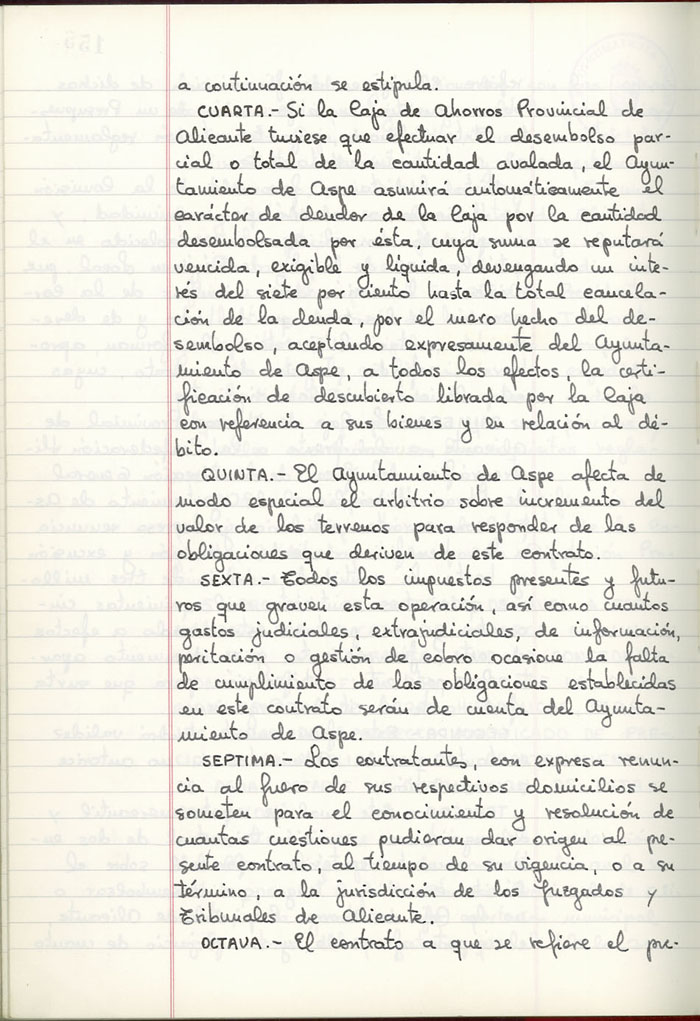 a continuación se estipula.
CUARTA.- Si la Caja de Ahorros Provincial de
Alicante tuviese que efectuar el desembolso par-
cial o total de la cantidad avalada, el Ayun-
tamiento de Aspe asumirá automáticamente el
carácter de deudor de la Caja por la cantidad
desembolsada por ésta, cuya suma se reputará
vencida, exigible y líquida, devengando un inte-
rés del siete por ciento hasta la total cancela-
ción de la deuda, por el mero hecho del de-
sembolso, aceptando expresamente del Ayunta-
miento de Aspe, a todos los efectos, la certi-
ficación de descubierto librada por la Caja
con referencia a sus bienes y en relación al dé-
bito.
QUINTA.- El Ayuntamiento de Aspe afecta de
modo especial el arbitrio sobre incremento del
valor de los terrenos para responder de las
obligaciones que deriven de este contrato.
SEXTA.- Todos los impuestos presentes y futu-
ros que graven esta operación, así como cuantos
gastos judiciales, extrajudiciales, de información,
peritación o gestión de cobro ocasione la falta
de cumplimiento de las obligaciones establecidas
en este contrato serán de cuenta del Ayunta-
miento de Aspe.
SEPTIMA.- Los contratantes, con expresa renun-
cia al fuero de sus respectivos domicilios se
someten para el conocimiento y resolución de
cuantas cuestiones pudieran dar origen al pre-
sente contrato, al tiempo de su vigencia, o a su
término, a la jurisdicción de los Juzgados y
Tribunales de Alicante.
OCTAVA.- El contrato a que se refiere el pre-